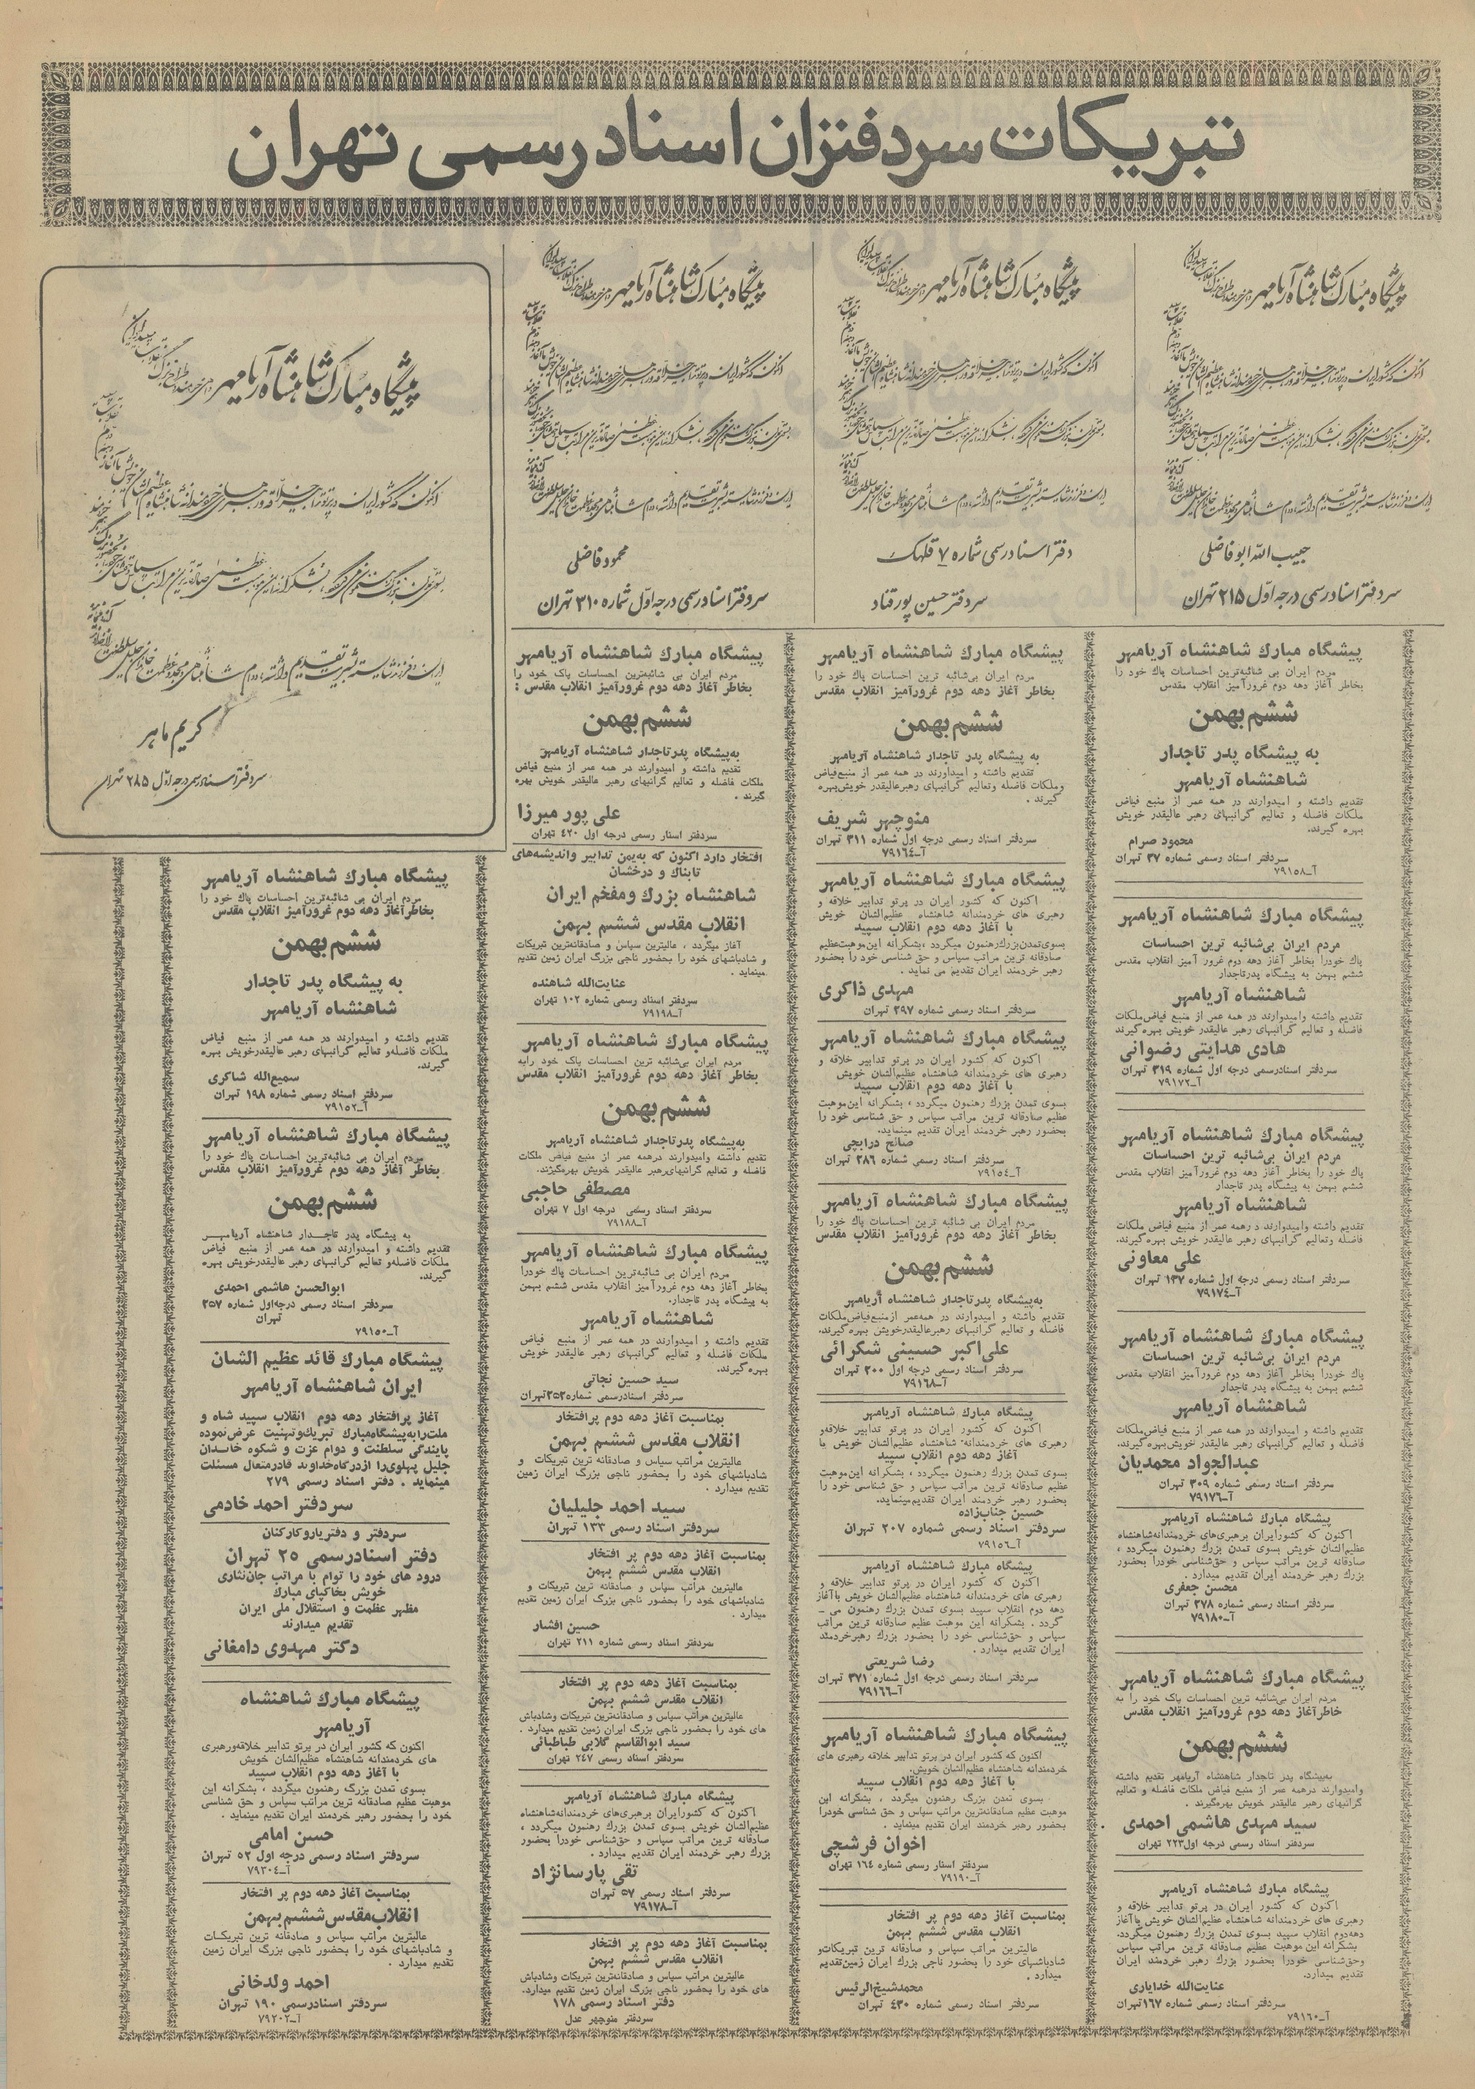 تبریکات سردفتران اسناد رسمی تهران
پیشگاه مبارک شاهنشاه آریامهر
حبیب الله ابوفاضلی
سردفتر اسناد رسمی درجه اول ۲۱۵ تهران
پیشگاه مبارک شاهنشاه آریامهر
دفتر اسناد رسمی شماره ۷ قلهک
سردفتر حسین پورقناد
پیشگاه مبارک شاهنشاه آریامهر
محمود فاضلی
سردفتر اسناد رسمی درجه اول شماره ۳۱۰ تهران
پیشگاه مبارک شاهنشاه آریامهر
کریم ماهر
سردفتر اسناد رسمی درجه اول ۲۸۵ تهران
پیشگاه مبارك شاهنشاه آریامهر
مردم ایران بی شائبه‌ترین احساسات پاك خود را
بخاطر آغاز دهه دوم غرورآمیز انقلاب مقدس
ششم بهمن
به پیشگاه پدر تاجدار
شاهنشاه آریامهر
تقدیم داشته و امیدوارند در همه عمر از منبع فیاض
ملکات فاضله و تعالیم گرانبهای رهبر عالیقدر خویش
بهره گیرند.
محمود صرام
سردفتر اسناد رسمی شماره ۳۷ تهران
آـ۷۹۱۵۸
پیشگاه مبارك شاهنشاه آریامهر
مردم ایران بی‌شائبه ترین احساسات
پاك خودرا بخاطر آغاز دهه دوم غرور آمیز انقلاب مقدس
ششم بهمن به پیشگاه پدرتاجدار
شاهنشاه آریامهر
تقدیم داشته وامیدوارند در همه عمر از منبع فیاض‌ملکات
فاضله و تعالیم گرانبهای رهبر عالیقدر خویش بهره گیرند
هادی هدایتی رضوانی
سردفتر اسنادرسمی درجه اول شماره ۳۱۹ تهران
آـ۷۹۱۷۲
پیشگاه مبارك شاهنشاه آریامهر
مردم ایران بی‌شائبه ترین احساسات
پاك خود را بخاطر آغاز دهه دوم غرورآمیز انقلاب مقدس
ششم بهمن به پیشگاه پدر تاجدار
شاهنشاه آریامهر
تقدیم داشته و امیدوارند د رهمه عمر از منبع فیاض ملکات
فاضله‌وتعالیم گرانبهای رهبر عالیقدر خویش بهره‌گیرند.
علی معاونی
سردفتر اسناد رسمی درجه اول شماره ۱۳۷ تهران
آـ۷۹۱۷٤
پیشگاه مبارك شاهنشاه آریامهر
مردم ایران بی‌شائبه ترین احساسات
پاك خودرا بخاطر آغاز دهه دوم غرورآمیز انقلاب مقدس
ششم بهمن به پیشگاه پدر تاجدار
شاهنشاه آریامهر
تقدیم داشته و امیدوارند در همه عمر از منبع فیاض‌ملکات
فاضله و تعالیم گرانبهای رهبر عالیقدر خویش‌بهره‌گیرند.
عبدالجواد محمدیان
سردفتر اسناد رسمی شماره ۳۰۹ تهران
آـ۷۹۱۷۶
پیشگاه مبارك شاهنشاه آریامهر
اکنون که کشورایران برهبری‌های خردمندانه‌شاهنشاه
عظیم‌الشان خویش بسوی تمدن بزرك رهنمون میگردد ،
صادقانه ترین مراتب سپاس و حق‌شناسی خودرا بحضور
بزرك رهبر خردمند ایران تقدیم میدارد .
محسن جعفری
سردفتر اسناد رسمی شماره ۲۷۸ تهران
آـ۷۹۱۸۰
پیشگاه مبارك شاهنشاه آریامهر
مردم ایران بی‌شائبه ترین احساسات پاک خود را به
خاطرآغاز دهه دوم غرورآمیز انقلاب مقدس
ششم بهمن
به‌پیشگاه پدر تاجدار شاهنشاه آریامهر تقدیم داشته
وامیدوارند درهمه عمر از منبع فیاض ملکات فاضله و تعالیم
گرانبهای رهبر عالیقدر خویش بهره‌گیرند .
سید مهدی هاشمی احمدی
سردفتر اسناد رسمی درجه اول۲۲۳ تهران
پیشگاه مبارك شاهنشاه آریامهر
اکنون که کشور ایران در پرتو تدابیر خلاقه و
رهبری های خردمندانه شاهنشاه عظیم‌الشان خویش باآغاز
دهه‌دوم انقلاب سپید بسوی تمدن بزرك رهنمون میگردد.
بشکرانه این موهبت عظیم صادقانه ترین مراتب سپاس
وحق‌شناسی خودرا بحضور بزرك رهبر خردمند ایران
تقدیم میدارد.
عنایت‌الله خدایاری
سردفتر اسناد رسمی شماره ۱۶۷تهران
آـ۷۹۱۶۰
پیشگاه مبارك شاهنشاه آریامهر
مردم ایران بی شائبه ترین احساسات پاك خود را
بخاطر آغاز دهه دوم غرورآمیز انقلاب مقدس
ششم بهمن
به پیشگاه پدر تاجدار شاهنشاه آریامهر
تقدیم داشته و امیدوارند در همه عمر از منبع‌فیاض
وملکات فاضله وتعالیم گرانبهای رهبرعالیقدر خویش‌بهره
گیرند .
منوچهر شریف
سردفتر اسناد رسمی درجه اول شماره ۳۱۱ تهران
آـ۷۹۱۶٤
پیشگاه مبارك شاهنشاه آریامهر
اکنون که کشور ایران در پرتو تدابیر خلاقه و
رهبری های خردمندانه شاهنشاه عظیم‌الشان خویش
با آغاز دهه دوم انقلاب سپید
بسوی‌تمدن‌بزرك‌رهنمون میگردد ،بشکرانه این‌موهبت‌عظیم
صادقانه ترین مراتب سپاس و حق شناسی خود را بحضور
رهبر خردمند ایران تقدیم می نماید .
مهدی ذاکری
سردفتر اسناد رسمی شماره ۲۹۷ تهران
پیشگاه مبارك شاهنشاه آریامهر
اکنون که کشور ایران در پرتو تدابیر خلاقه و
رهبری های خردمندانه شاهنشاه عظیم‌الشان خویش
با آغاز دهه دوم انقلاب سپید
بسوی تمدن بزرك رهنمون میگردد ، بشکرانه این‌موهبت
عظیم صادقانه ترین مراتب سپاس و حق شناسی خود را
بحضور رهبر خردمند ایران تقدیم مینماید.
صالح درابچی
سردفتر اسناد رسمی شماره ۲۸۶ تهران
آـ۷۹۱۵٤
پیشگاه مبارك شاهنشاه آریامهر
مردم ایران بی شائبه ترین احساسات پاك خود را
بخاطر آغاز دهه دوم غرورآمیز انقلاب مقدس
ششم بهمن
به‌پیشگاه پدرتاجدار شاهنشاه آریامهر
تقدیم داشته و امیدوارند در همه‌عمر ازمنبع‌فیاض‌ملکات
فاضله و تعالیم گرانبهای رهبرعالیقدرخویش بهره‌گیرند.
علی‌اکبر حسینی شکرائی
سردفتر اسناد رسمی درجه اول ۲۰۰ تهران
آـ۷۹۱۶۸
پیشگاه مبارك شاهنشاه آریامهر
اکنون که کشور ایران در پرتو تدابیر خلاقه‌و
رهبری های خردمندانه شاهنشاه عظیم‌الشان خویش با
آغاز دهه دوم انقلاب سپید
بسوی تمدن بزرك رهنمون میگردد ، بشکرانه این‌موهبت
عظیم صادقانه ترین مراتب سپاس و حق شناسی خود را
بحضور رهبر خردمند ایران تقدیم‌مینماید.
حسین جناب‌زاده
سردفتر اسناد رسمی شماره ۲۰۷ تهران
آـ۷۹۱۵۶
پیشگاه مبارك شاهنشاه آریامهر
اکنون که کشور ایران در پرتو تدابیر خلاقه و
رهبری های خردمندانه شاهنشاه عظیم‌الشان خویش باآغاز
دهه دوم انقلاب سپید بسوی تمدن بزرك رهنمون می ـ
گردد . بشکرانه این موهبت عظیم صادقانه ترین مراتب
سپاس و حق‌شناسی خود را بحضور بزرك رهبرخردمند
ایران تقدیم میدارد .
رضا شریعتی
سردفتر اسناد رسمی درجه اول شماره ۳۷۱ تهران
آـ۷۹۱۶۶
پیشگاه مبارك شاهنشاه آریامهر
اکنون که کشور ایران در پرتو تدابیر خلاقه رهبری های
خردمندانه شاهنشاه عظیم‌الشان خویش.
با آغاز دهه دوم انقلاب سپید
بسوی تمدن بزرگ رهنمون میگردد ، بشکرانه این
موهبت عظیم صادقانه‌ترین مراتب سپاس و حق شناسی خودرا
بحضور رهبر خردمند ایران تقدیم مینماید .
اخوان فرشچی
سردفتر اسناد رسمی شماره ۱۶٤ تهران
آـ۷۹۱۹۰
بمناسبت آغاز دهه دوم پر افتخار
انقلاب مقدس ششم بهمن
عالیترین مراتب سپاس و صادقانه ترین تبریکات‌و
شادباشهای خود را بحضور ناجی بزرگ ایران زمین‌تقدیم
میدارد .
محمدشیخ‌الرئیس
سردفتر اسناد رسمی شماره ٤۳۰ تهران
پیشگاه مبارك شاهنشاه آریامهر
مردم ایران بی شائبه‌ترین احساسات پاک خود را
بخاطر آغاز دهه دوم غرورآمیز انقلاب مقدس :
ششم بهمن
به‌پیشگاه پدرتاجدار شاهنشاه آریامهر
تقدیم داشته و امیدوارند در همه عمر از منبع فیاض
ملکات فاضله و تعالیم گرانبهای رهبر عالیقدر خویش بهره
گیرند .
علی پور میرزا
سردفتر اسناد رسمی درجه اول ٤۲۰ تهران
افتخار دارد اکنون که به‌یمن تدابیر واندیشه‌های
تابناك و درخشان
شاهنشاه بزرك ومفخم ایران
انقلاب مقدس ششم بهمن
آغاز میگردد ، عالیترین سپاس و صادقانه‌ترین تبریکات
و شادباشهای خود را بحضور ناجی بزرگ ایران زمین تقدیم
مینماید .
عنایت‌الله شاهنده
سردفتر اسناد رسمی شماره ۱۰۲ تهران
آـ۷۹۱۹۸
پیشگاه مبارك شاهنشاه آریامهر
مردم ایران بی‌شائبه ترین احساسات پاک خود رابه
بخاطر آغاز دهه دوم غرورآمیز انقلاب مقدس
ششم بهمن
به‌پیشگاه پدرتاجدار شاهنشاه آریامهر
تقدیم داشته وامیدوارند درهمه عمر از منبع فیاض ملکات
فاضله و تعالیم گرانبهای‌رهبر عالیقدر خویش بهره‌گیرند.
مصطفی حاجبی
سردفتر اسناد رسمی درجه اول ۷ تهران
آـ۷۹۱۸۸
پیشگاه مبارك شاهنشاه آریامهر
مردم ایران بی شائبه‌ترین احساسات پاك خودرا
بخاطر آغاز دهه دوم غرورآمیز انقلاب مقدس ششم بهمن
به پیشگاه پدر تاجدار.
شاهنشاه آریامهر
تقدیم داشته و امیدوارند در همه عمر از منبع فیاض
ملکات فاضله و تعالیم گرانبهای رهبر عالیقدر خویش
بهره‌گیرند.
سید حسین نجاتی
سردفتر اسنادرسمی شماره۲۵۲تهران
بمناسبت آغاز دهه دوم پرافتخار
انقلاب مقدس ششم بهمن
عالیترین مراتب سپاس و صادقانه ترین تبریکات و
شادباشهای خود را بحضور ناجی بزرك ایران زمین
تقدیم میدارد .
سید احمد جلیلیان
سردفتر اسناد رسمی ۱۳۳ تهران
بمناسبت آغاز دهه دوم پر افتخار
انقلاب مقدس ششم بهمن
عالیترین مراتب سپاس و صادقانه ترین تبریکات و
شادباشهای خود را بحضور ناجی بزرگ ایران زمین تقدیم
میدارد .
حسین افشار
سردفتر اسناد رسمی شماره ۲۱۱ تهران
بمناسبت آغاز دهه دوم پر افتخار
انقلاب مقدس ششم بهمن
عالیترین مراتب سپاس و صادقانه‌ترین تبریکات وشادباش
های خود را بحضور ناجی بزرگ ایران زمین تقدیم میدارد .
سید ابوالقاسم گلابی طباطبائی
سردفتر اسناد رسمی ۲٤۷ تهران
پیشگاه مبارك شاهنشاه آریامهر
اکنون که کشورایران برهبری‌های خردمندانه‌شاهنشاه
عظیم‌الشان خویش بسوی تمدن بزرك رهنمون میگردد ،
صادقانه ترین مراتب سپاس و حق‌شناسی خودرا بحضور
بزرك رهبر خردمند ایران تقدیم میدارد .
تقی پارسانژاد
سردفتر اسناد رسمی ۵۷ تهران
آـ۷۹۱۷۸
بمناسبت آغاز دهه دوم پر افتخار
انقلاب مقدس ششم بهمن
عالیترین مراتب سپاس و صادقانه‌ترین تبریکات وشادباش
های خود را بحضور ناجی بزرگ ایران زمین تقدیم میدارد.
دفتر اسناد رسمی ۱۷۸
سردفتر منوچهر عدل
پیشگاه مبارك شاهنشاه آریامهر
مردم ایران بی شائبه‌ترین احساسات پاك خود را
بخاطرآغاز دهه دوم غرورآمیز انقلاب مقدس
ششم بهمن
به پیشگاه پدر تاجدار
شاهنشاه آریامهر
تقدیم داشته و امیدوارند در همه عمر از منبع فیاض
ملکات فاضله‌و تعالیم گرانبهای رهبر عالیقدرخویش بهره
گیرند.
سمیع‌الله شاکری
سردفتر اسناد رسمی شماره ۱۹۸ تهران
آـ۷۹۱۵۲
پیشگاه مبارك شاهنشاه آریامهر
مردم ایران بی شائبه‌ترین احساسات پاك خود را
بخاطر آغاز دهه دوم غرورآمیز انقلاب مقدس
ششم بهمن
به پیشگاه پدر تاجـدار شاهنشاه آریامهـر
تقدیم داشته و امیدوارند در همه عمر از منبع فیاض
ملکات فاضله‌و تعالیم گرانبهای رهبر عالیقدرخویش بهره
گیرند.
ابوالحسن هاشمی احمدی
سردفتر اسناد رسمی درجه‌اول شماره ۲۵۷
تهران
آـ۷۹۱۵۰
پیشگاه مبارك قائد عظیم الشان
ایران شاهنشاه آریامهر
آغاز پرافتخار دهه دوم انقلاب سپید شاه و
ملت‌را به‌پیشگاه‌مبارك تبریك‌وتهنیت عرض‌نموده
پایندگی سلطنت و دوام عزت و شکوه خاندان
جلیل پهلوی‌را ازدرگاه‌خداوند قادرمتعال مسئلت
مینماید . دفتر اسناد رسمی ۲۷۹
سردفتر احمد خادمی
سردفتر و دفتریاروکارکنان
دفتر اسنادرسمی ۲۵ تهران
درود های خود را توام با مراتب جان‌نثاری
خویش بخاکپای مبارك
مظهر عظمت و استقلال ملی ایران
تقدیم میدارند
دکتر مهدوی دامغانی
پیشگاه مبارك شاهنشاه
آریامهر
اکنون که کشور ایران در پرتو تدابیر خلاقه‌ورهبری
های خردمندانه شاهنشاه عظیم‌الشان خویش
با آغاز دهه دوم انقلاب سپید
بسوی تمدن بزرگ رهنمون میگردد ، بشکرانه این
موهبت عظیم صادقانه‌ترین مراتب سپاس و حق شناسی
خود را بحضور رهبر خردمند ایران تقدیم مینماید .
حسن امامی
سردفتر اسناد رسمی درجه اول ۵۲ تهران
آـ۷۹۳۰٤
بمناسبت آغاز دهه دوم پر افتخار
انقلاب‌مقدس‌ششم‌بهمن
عالیترین مراتب سپاس و صادقانه ترین تبریکـات
و شادباشهای خود را بحضور ناجی بزرگ ایران زمین
تقدیم میدارد .
احمد ولدخانی
سردفتر اسنادرسمی ۱۹۰ تهران
آـ۷۹۲۰۲